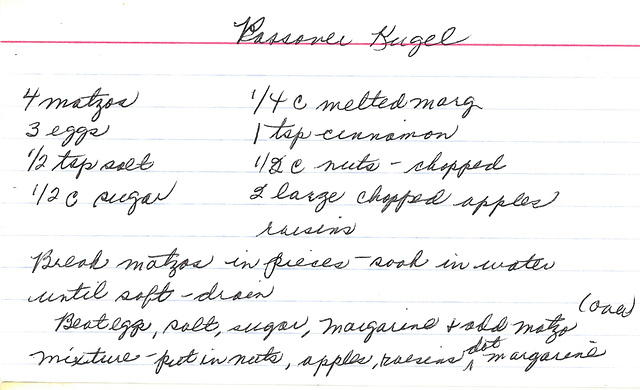 Passover Kugel
4 matzos 1/4 c melted marg
3 eggs 1 tsp cinnamon
1/2 tsp salt 1/2 c nuts - chopped
1/2 c sugar 2 large chopped apples
raisins
Break matzos in pieces - soak in water
until soft - drain
(over)
Beat egg, salt, sugar, margarine & add matzo
mixture - put in nuts, apples, raisins dot margarine